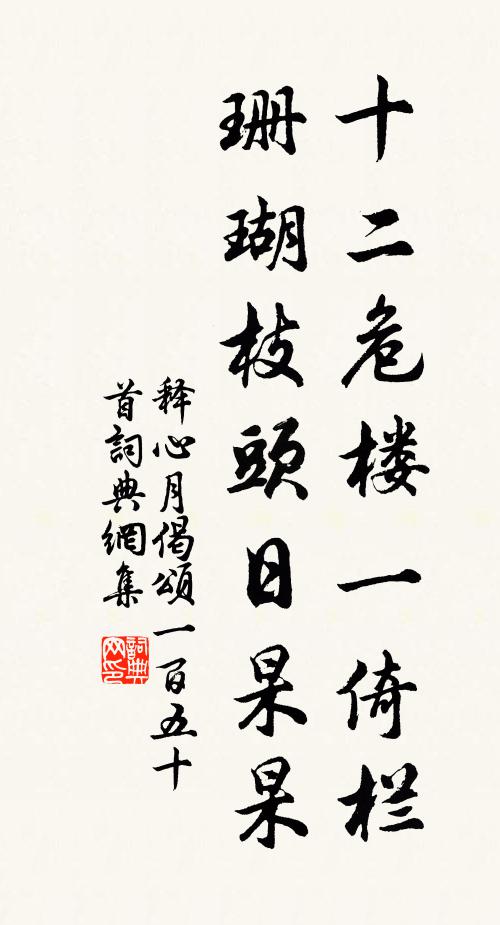 十二危楼一倚栏
珊瑚枝頭日杲杲
释心月偈頌一百五十
首詞典網集
詞典网印